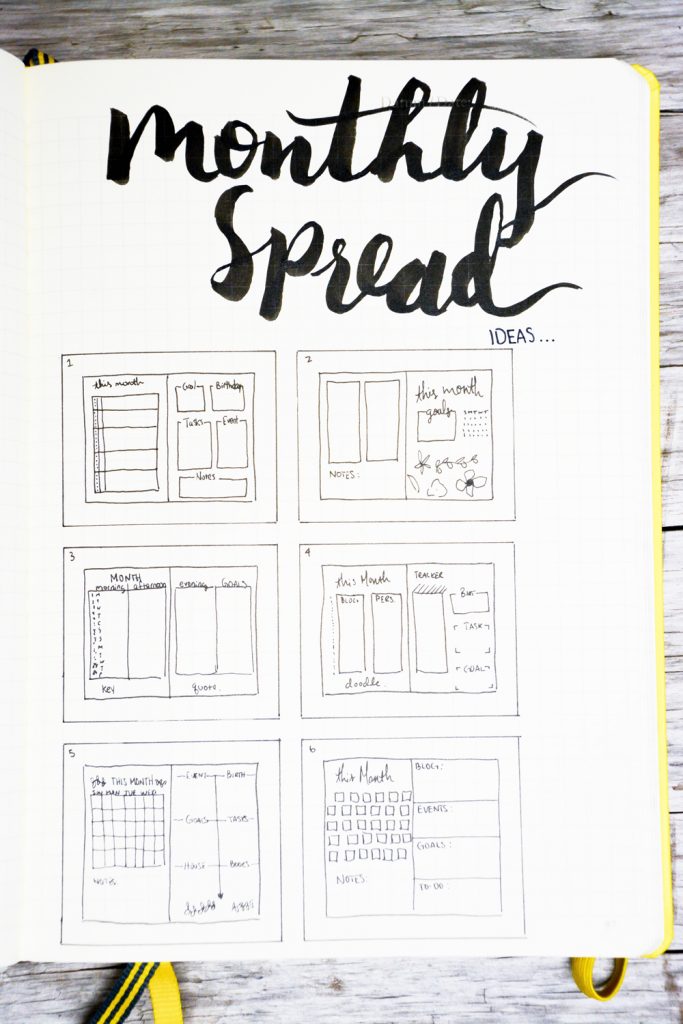 monthly
Spread
IDEAS...
1
this month
Goal
Birthday
Tasks
Event
Notes
2
this month
goals
S M T W T
NOTES:
3
MONTH
morning
afternoon
evening
GOALS
key
quote.
4
this Month
TRACKER
BLOG
PERS.
TASK
GOAL
doodle.
5
THIS MONTH
SUN MON TUE WED
NOTES
EVENT
BIRTH
GOALS
TASKS
HOUSE
BOOKS
6
this Month
NOTES:
BLOG:
EVENTS:
GOALS:
TO-DO: